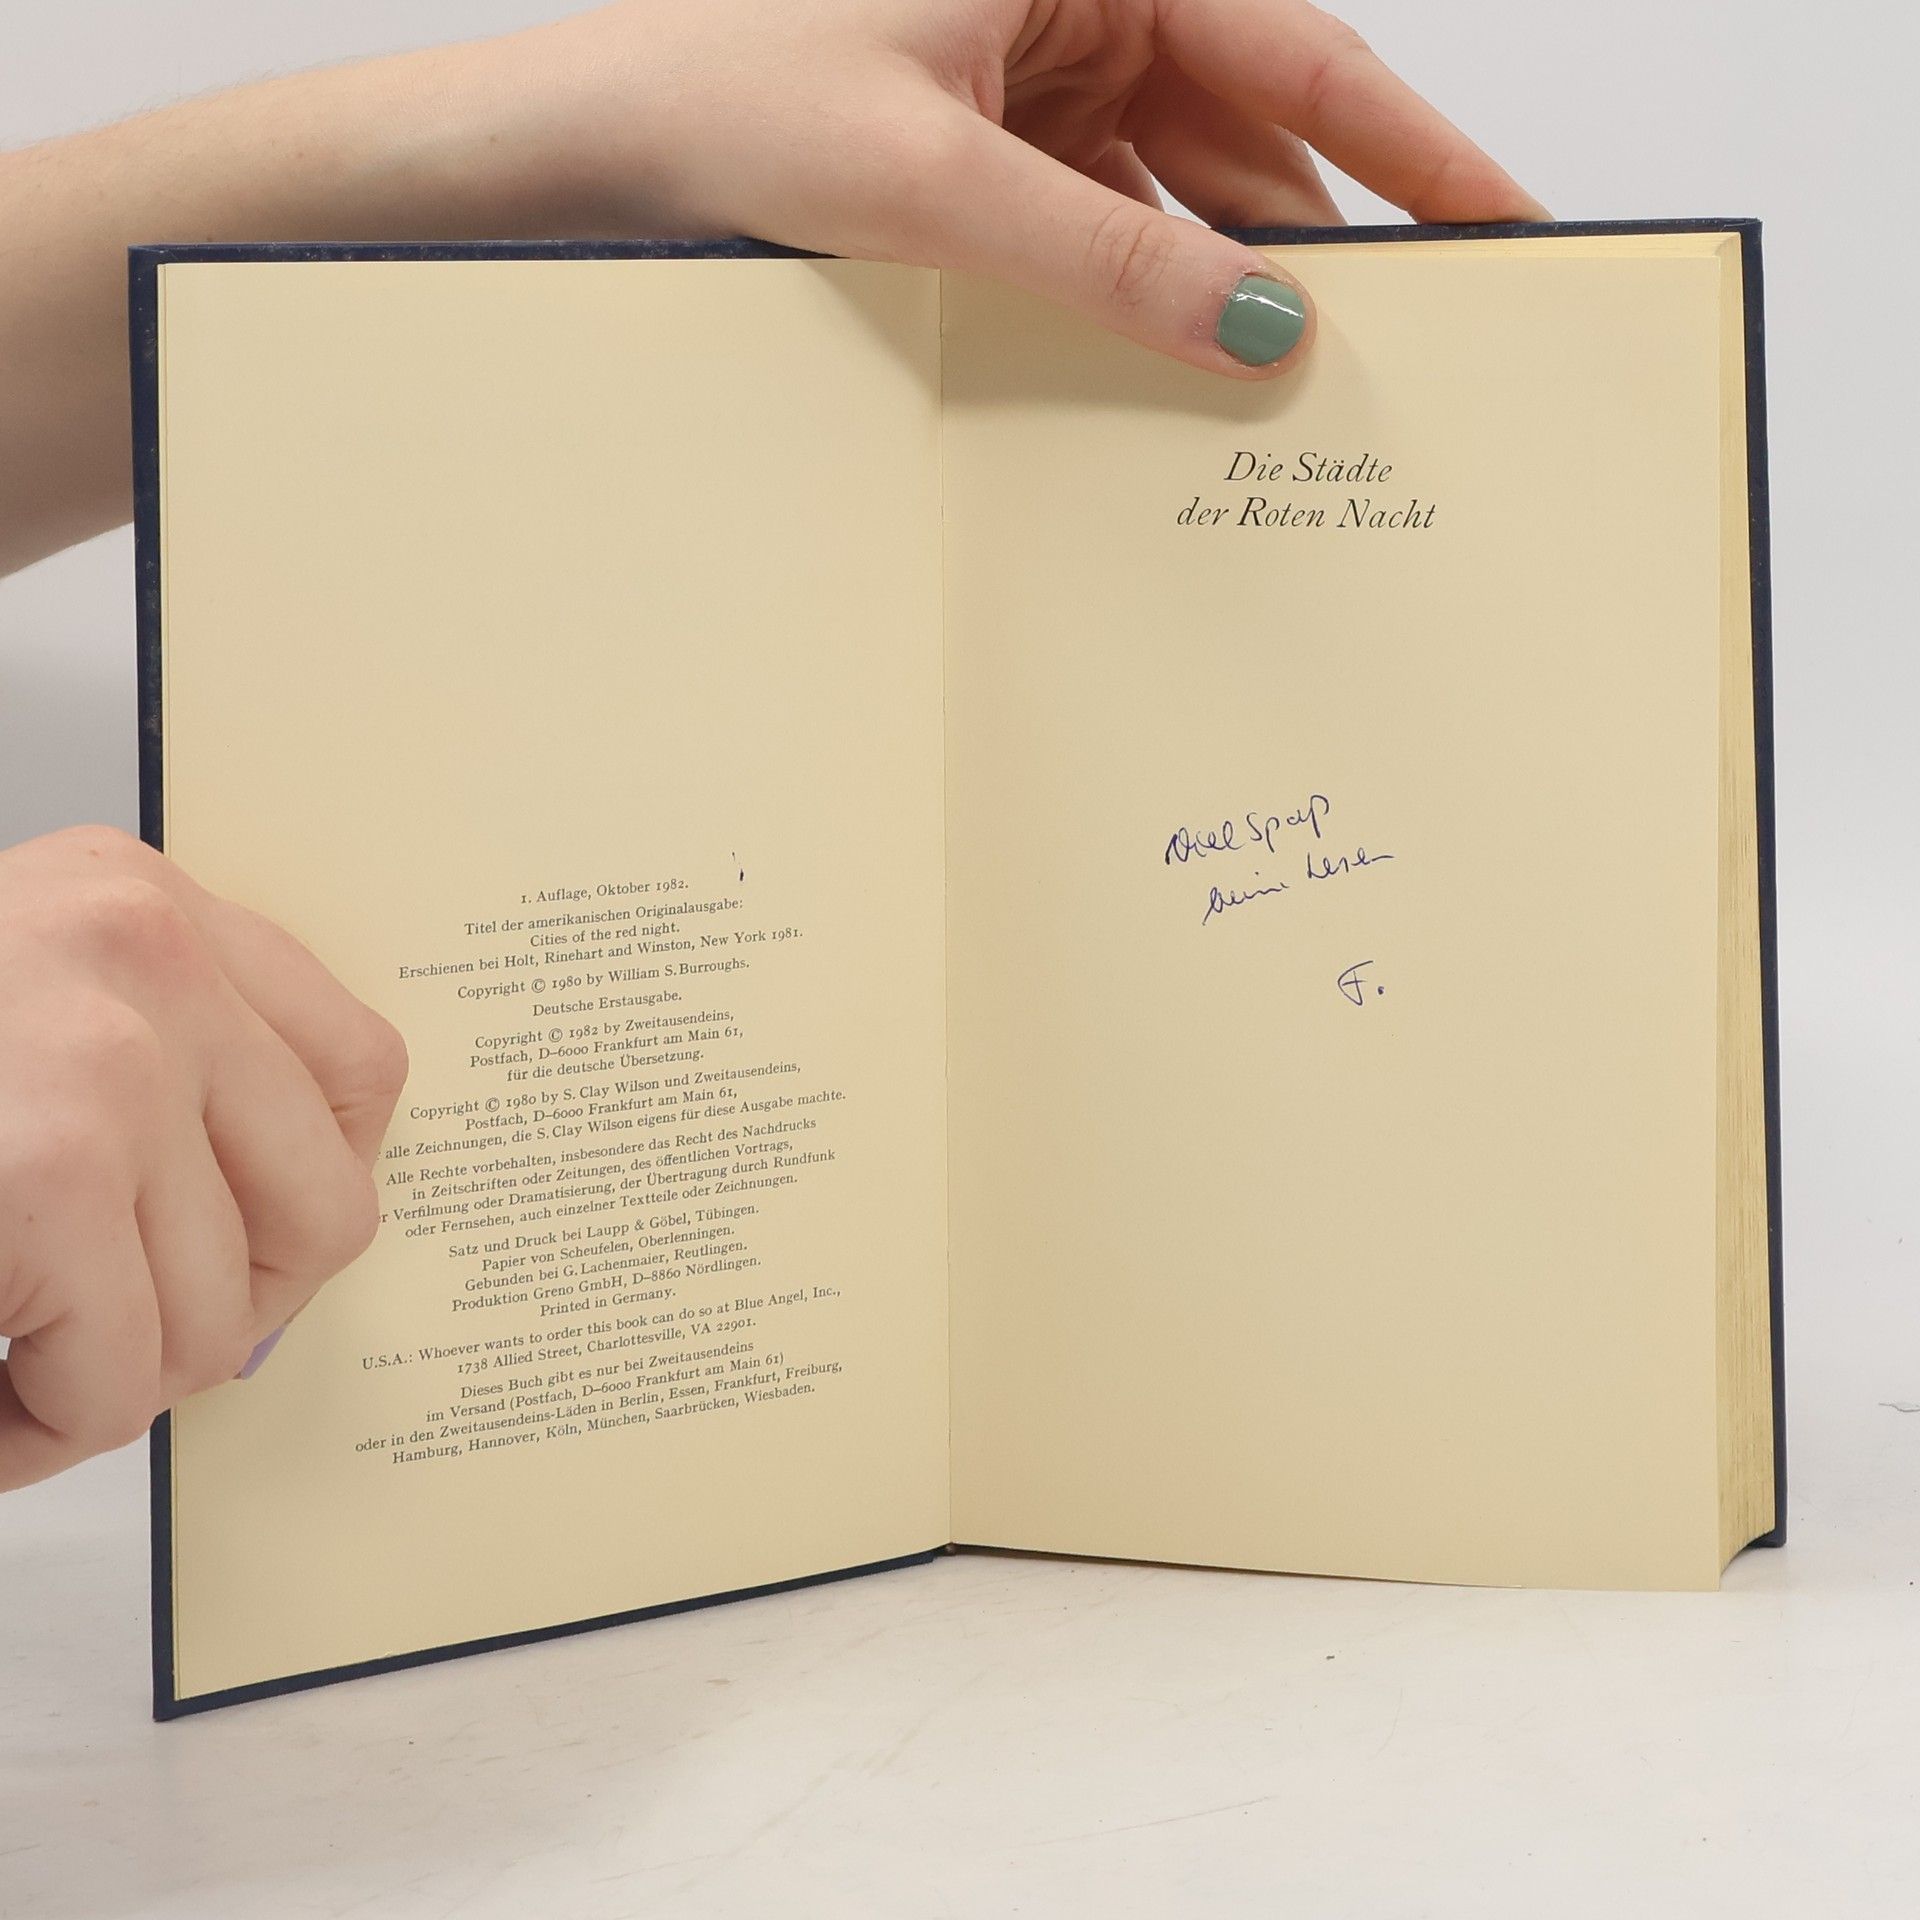 1. Auflage, Oktober 1982.
Titel der amerikanischen Originalausgabe:
Cities of the red night.
Erschienen bei Holt, Rinehart and Winston, New York 1981.
Copyright © 1980 by William S. Burroughs.
Deutsche Erstausgabe.
Copyright © 1982 by Zweitausendeins,
Postfach, D–6000 Frankfurt am Main 61,
für die deutsche Übersetzung.
Copyright © 1980 by S. Clay Wilson und Zweitausendeins,
Postfach, D–6000 Frankfurt am Main 61,
alle Zeichnungen, die S. Clay Wilson eigens für diese Ausgabe machte.
Alle Rechte vorbehalten, insbesondere das Recht des Nachdrucks
in Zeitschriften oder Zeitungen, des öffentlichen Vortrags,
Verfilmung oder Dramatisierung, der Übertragung durch Rundfunk
oder Fernsehen, auch einzelner Textteile oder Zeichnungen.
Satz und Druck bei Laupp & Göbel, Tübingen.
Papier von Scheufelen, Oberlenningen.
Gebunden bei G. Lachenmaier, Reutlingen.
Produktion Greno GmbH, D–8860 Nördlingen.
Printed in Germany.
U.S.A.: Whoever wants to order this book can do so at Blue Angel, Inc.,
1738 Allied Street, Charlottesville, VA 22901.
Dieses Buch gibt es nur bei Zweitausendeins
im Versand (Postfach, D–6000 Frankfurt am Main 61)
oder in den Zweitausendeins-Läden in Berlin, Essen, Frankfurt, Freiburg,
Hamburg, Hannover, Köln, München, Saarbrücken, Wiesbaden.
Die Städte
der Roten Nacht
Viel Spaß
beim Lesen
F.